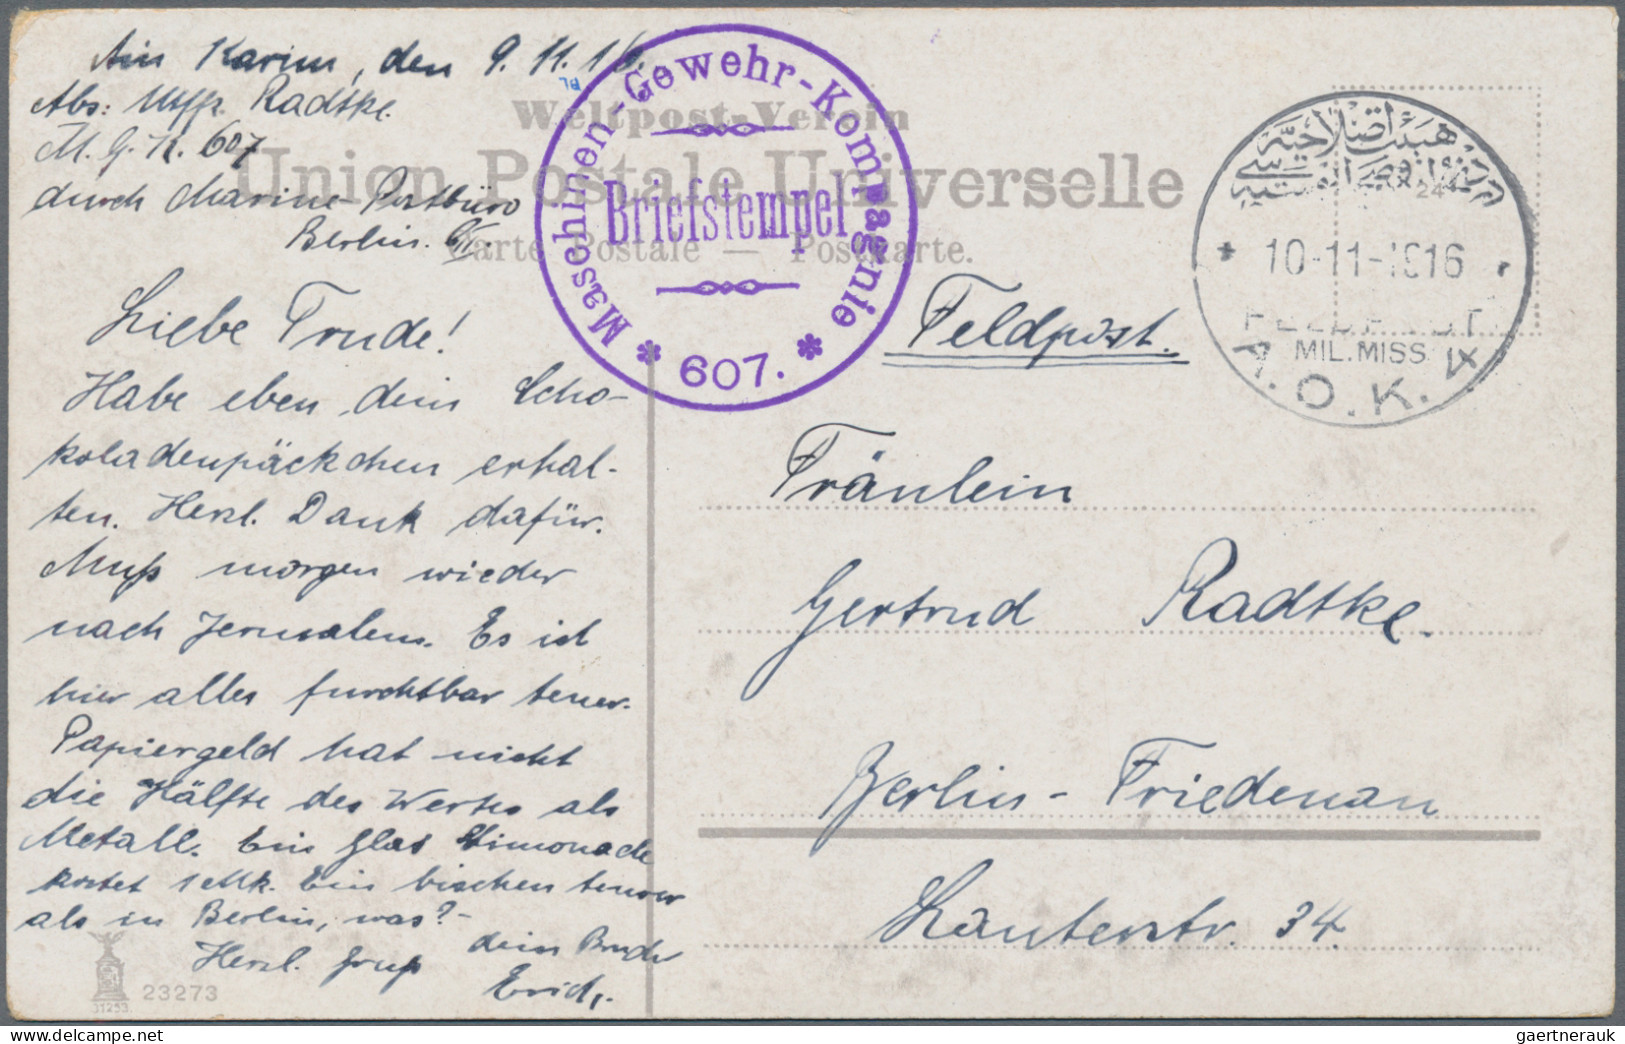 Ain Karim, den 9.11.16.
Abs: Uffz. Radtke.
M. G. K. 607
durch Marine-Postbüro
Berlin.
Liebe Trude!
Habe eben dein Scho-
koladenpäckchen erhal-
ten. Herzl. Dank dafür.
Muß morgen wieder
nach Jerusalem. Es ist
hier alles furchtbar teuer.
Papiergeld hat nicht
die Hälfte des Wertes als
Metall. Ein Glas Limonade
kostet 1 Mk. Ein bischen teurer
als in Berlin, was?-
Herzl. Gruß dein Bruder
Erich.
Weltpost-Verein
Union Postale Universelle
Carte Postale — Postkarte.
Maschinen-Gewehr-Kompagnie
Briefstempel
* 607. *
10-11-1916
FELDPOST
MIL.MISS
A.O.K. 4
Feldpost.
Fräulein
Gertrud Radtke.
Berlin-Friedenau
Lauterstr. 34.
23273
31253
delcampe.net
gaertnerauk